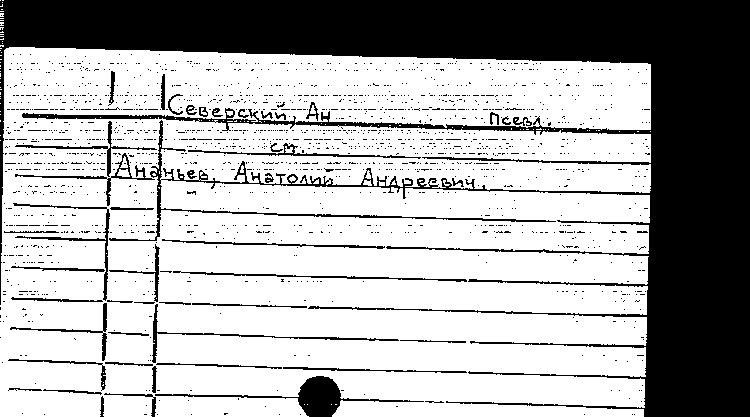 Северский, Ан псевд.
см.
Ананьев, Анатолий Андреевич.